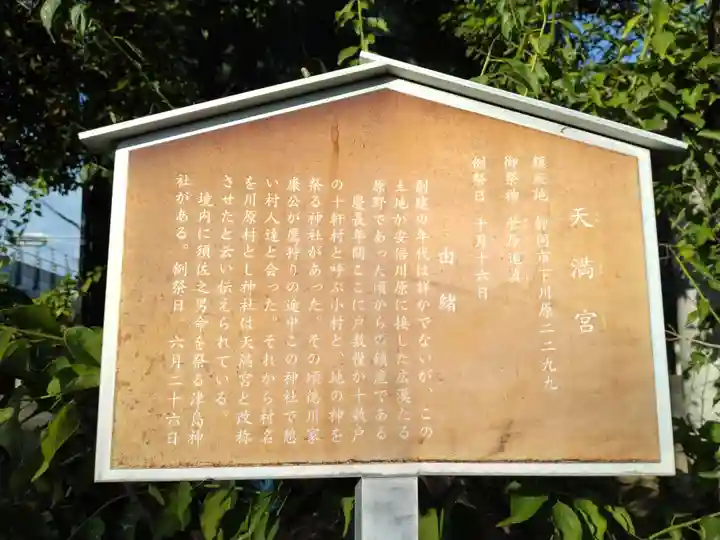 天満宮
鎮座地 静岡市下川原二二九九
御祭神 菅原道真
例祭日 十月十六日
由緒
創建の年代は詳かでないが、この
土地が安倍川原に接した広漠たる
原野であった頃からの鎮座である
慶長年間ここに戸数僅か十数戸
の十軒村と呼ぶ小村と、地の神を
祭る神社があった。その頃徳川家
康公が鷹狩りの途中この神社で憩
い村人達と会った。それから村名
を川原村とし神社は天満宮と改称
させたと云い伝えられている。
境内に須佐之男命を祭る津島神
社がある。例祭日 六月二十六日